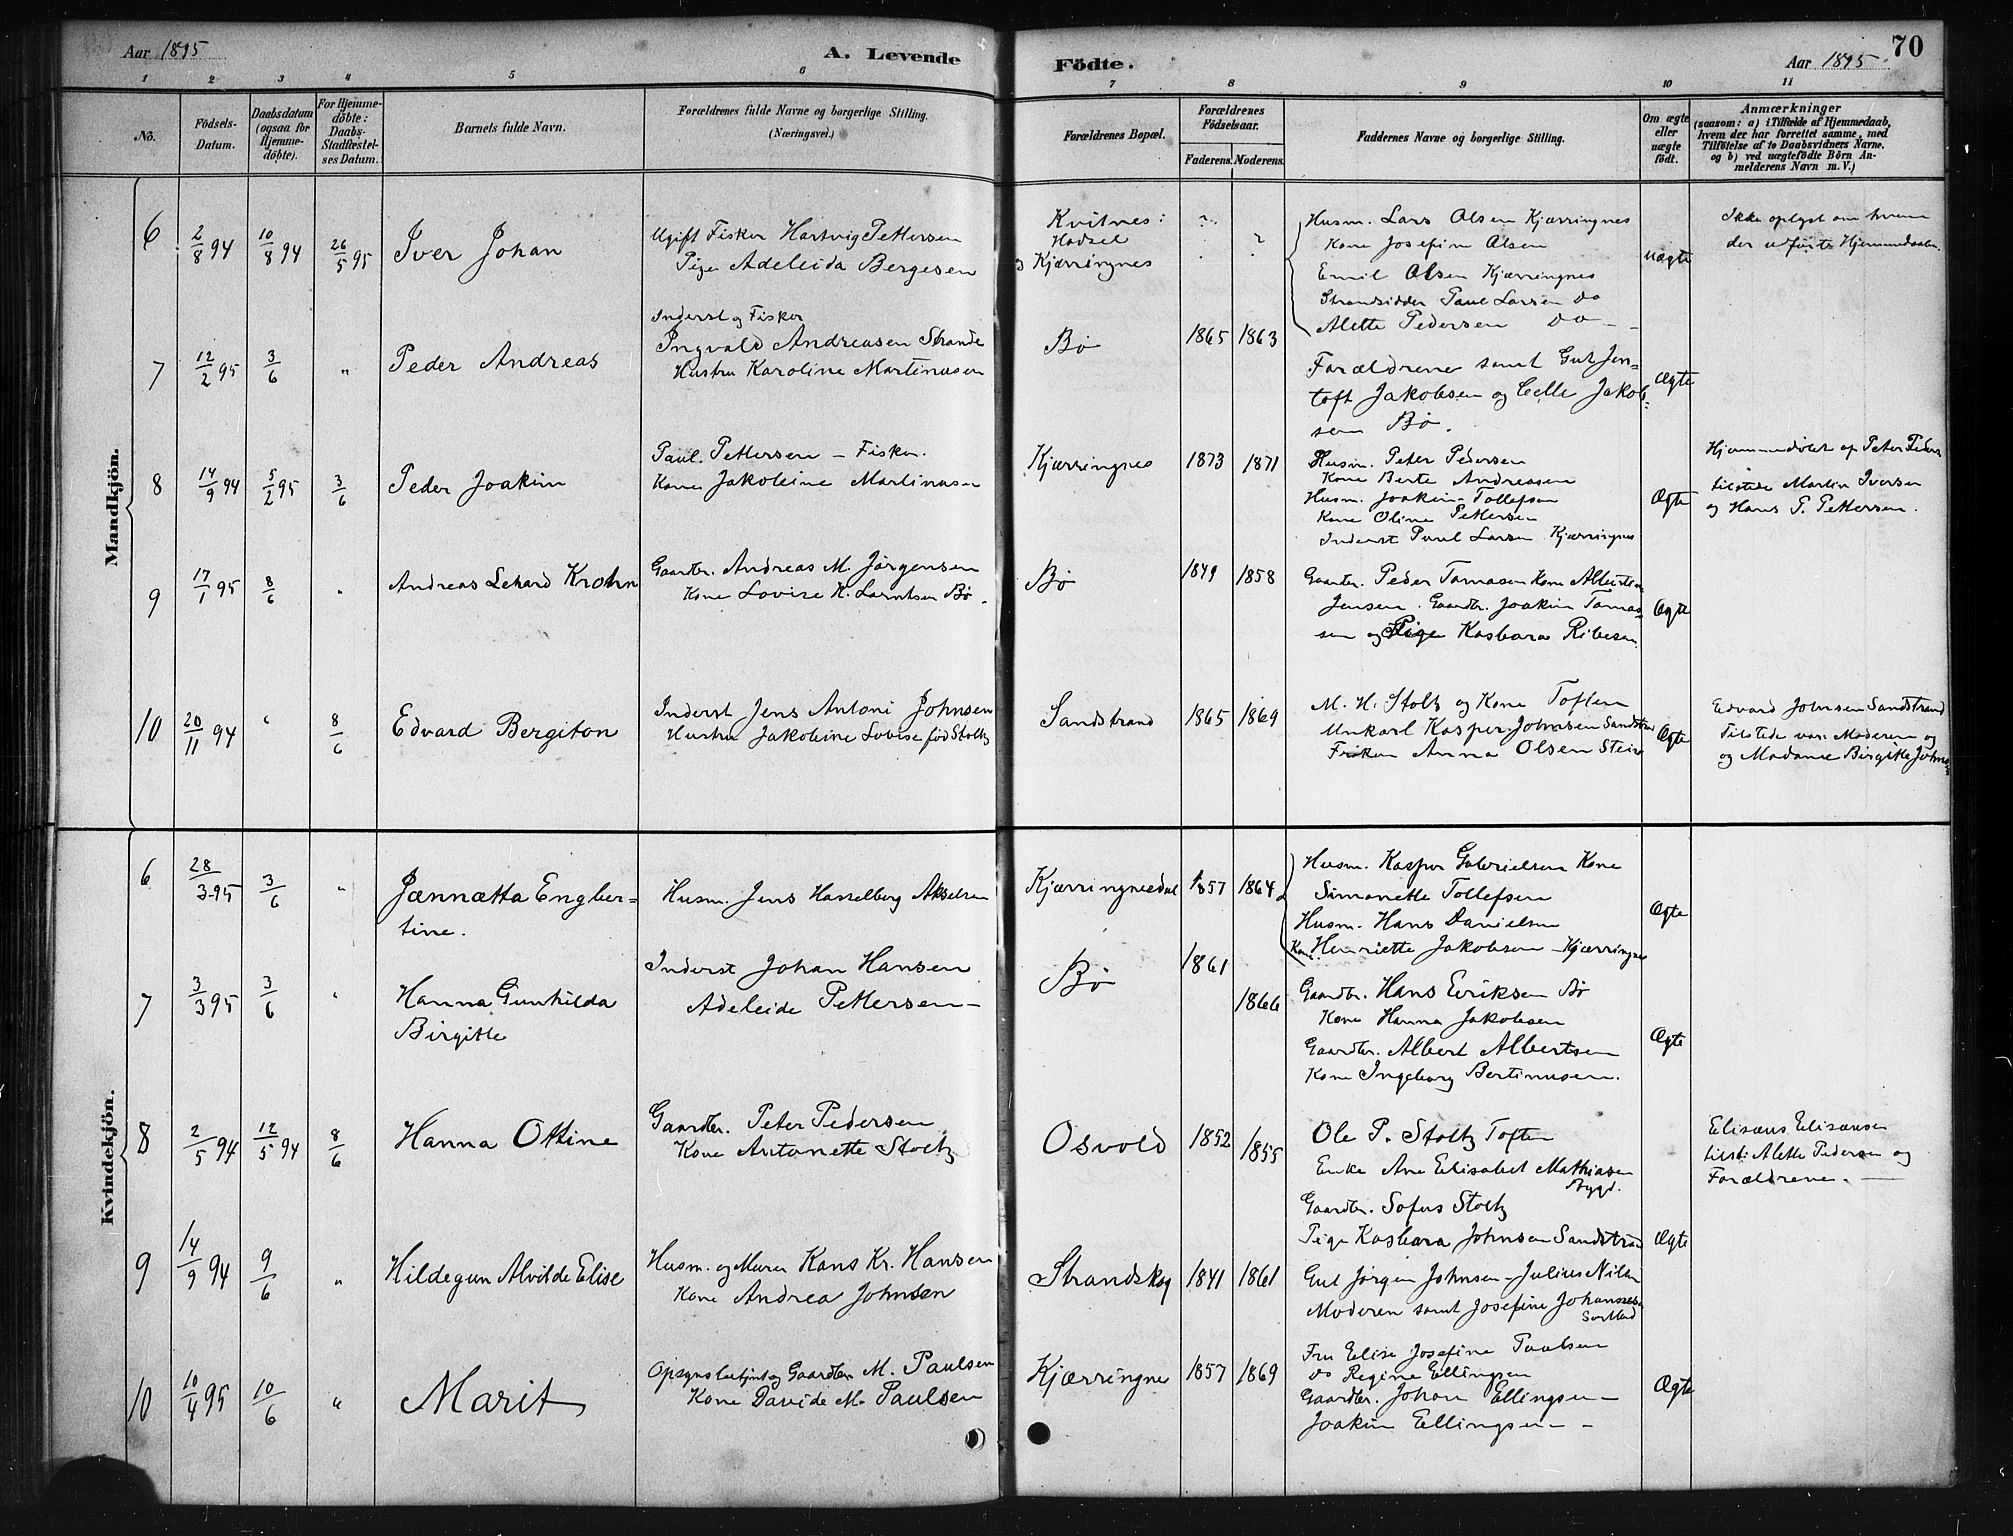 Aar 1895
A. Levende
Födte.
Aar 1895.
70
1 2 3 4 5 6 7 8 9 10 11
No.
Födsels-
Datum.
Daabsdatum
(ogsaa for
Hjemme-
döbte).
For Hjemme-
döbte:
Daabs-
Stadfæstel-
ses Datum.
Barnets fulde Navn.
Forældrenes fulde Navne og borgerlige Stilling.
(Næringsvei.)
Forældrenes Bopæl.
Forældrenes
Födselsaar.
Faderens. Moderens.
Faddernes Navne og borgerlige Stilling.
Om ægte
eller
uægte
födt.
Anmærkninger
(saasom: a) i Tilfælde af Hjemmedaab,
hvem der har forrettet samme, med
Tilföielse af to Daabsvidners Navne,
og b) ved uægtefödte Börn An-
melderens Navn m. V.)
Mandkjön.
6
2/8 94
10/8 94
26/5 95
Iver Johan
Ugift Fisker Hartvig Pettersen
Pige Adeleida Bergesen
Kvitnes
Hadsel
Kjærringnes
Husm. Lars Olsen Kjærringnes
Kone Josefine Olsen
Emil Olsen Kjærringnes
Strandsidder Paul Larsen do
Alette Pedersen do
uægte
Ikke oplyst om hvem
der udførte Hjemmedaaben.
7
12/2 95
3/6
"
Peder Andreas
Inderst og Fisker
Ingvald Andreasen Strande
Hustru Karoline Martinusen
Bø
1865 1863
Forældrene samt Gut Jen-
toft Jakobsen og Celle Jakob-
sen Bø.
Ægte
8
14/9 94
5/2 95
3/6
Peder Joakim
Paul Pettersen - Fisker.
Kone Jakobine Martinusen
Kjærringnes
1873 1871
Husm. Peter Pedersen
Kone Berte Andreasen
Husm. Joakim Tollefsen
Kone Oline Pettersen
Inderst Paul Larsen Kjærringnes
Ægte
Hjemmedøbt af Peter Peders
tilstede Martin Iversen
og Hans P. Pettersen.
9
17/1 95
8/6
"
Andreas Lehard Krohn
Gaardbr. Andreas M. Jørgensen
Kone Lovise K. Larntsen Bø.
Bø
1849 1858
Gaardbr. Peder Tomasen Kone
Jensen. Gaardbr. Joakim Tomas-
sen og Pige Kasbara Ribesen.
Ægte
10
20/11 94
"
8/6
Edvard Bergiton
Inderst Jens Antoni Johnsen
Hustru Jakobine Lovise fød Stoltz
Sandstrand
1865 1869
M. H. Stoltz og Kone Toften
Unkarl Kasper Johnsen Sandstrand
Frøken Anna Olsen Steiro
Ægte
Edvard Johnsen Sandstrand
Tilstede var: Moderen og
og Madame Birgitte Johnsen
Kvindekjön.
6
28/3 95
3/6
"
Jænnætta Engber-
tine.
Husm. Jens Hasselberg Akselsen
Kjærringnesdal
1857 1864
Husm. Kasper Gabrielsen Kone
Simonette Tollefsen
Husm. Hans Danielsen
Kone Henriette Jakobsen - Kjærringnes
Ægte
7
3/3 95
3/6
"
Hanna Gunhilda
Birgitte
Inderst Johan Hansen
Adeleide Pettersen -
Bø
1861
1866
Gaardbr. Hans Eriksen Bø
Kone Hanna Jakobsen
Gaardbr. Albert Albertsen
Kone Ingeborg Bertinusen.
Ægte
8
2/5 94
12/5 94
8/6
Hanna Ottine
Gaardbr. Peter Pedersen
Kone Antonette Stoltz
Osvold
1852
1855
Ole P. Stoltz Toften
Enke Ane Elisabet Mathiasen
Bygd.
Gaardbr. Sofus Stoltz
Pige Kasbara Johnsen Sandstrand
Ægte
Elisæus Elisæusen
tilst: Alette Pedersen og
Forældrene. -
9
14/9 94
9/6
"
Hildegun Alvilde Elise
Husm. og Murer Hans Kr. Hansen
Kone Andrea Johnsen
Strandskog
1841 1861
Gut Jørgen Johnsen - Julius Nilsen
Moderen samt Josefine Johannesen
Sortland
10
10/4 95
10/6
"
Marit
Opsynsbetjent og Gaardbr. M. Paulsen
Kone Davide M. Paulsen
Kjærringnes
1857 1869
Fru Elise Josefine Paulsen
do Regine Ellingsen
Gaardbr. Johan Ellingsen -
Joakim Ellingsen -
Ægte